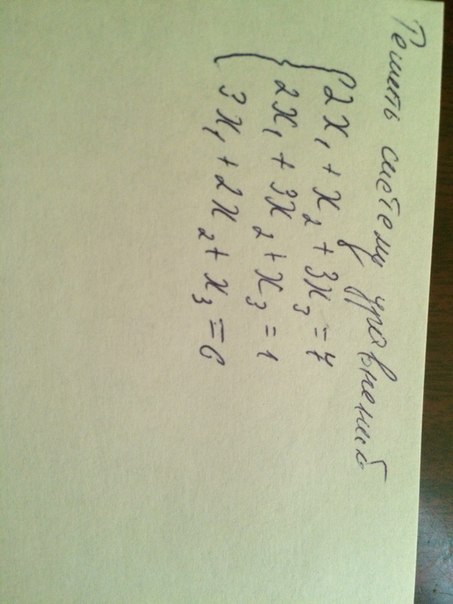 Решить систему уравнений
2x₁ + x₂ + 3x₃ = 7
2x₁ + 3x₂ + x₃ = 1
3x₁ + 2x₂ + x₃ = 6